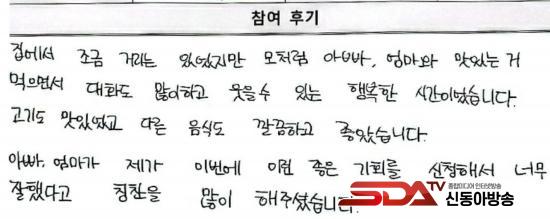 참여 후기
집에서 조금 거리는 있었지만 모처럼 아빠, 엄마와 맛있는 거
먹으면서 대화도 많이하고 웃을수 있는 행복한 시간이었습니다.
고기도 맛있었고 다른 음식도 깔끔하고 좋았습니다.
아빠, 엄마가 제가 이번에 이런 좋은 기회를 신청해서 너무
잘했다고 칭찬을 많이 해주셨습니다.
SDATV
종합미디어 인터넷방송
신동아방송